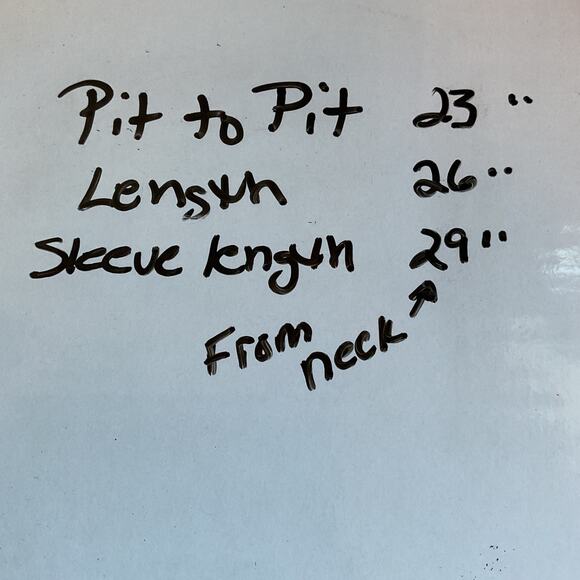 Pit to Pit 23"
Length 26"
Sleeve length 29"
From neck